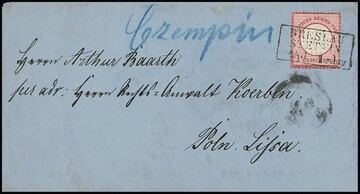 Czempin
BRESLAU
Herrn Arthur Baarth
per adr: Herrn Rechts-Anwalt Koerben.
Poln. Lissa.